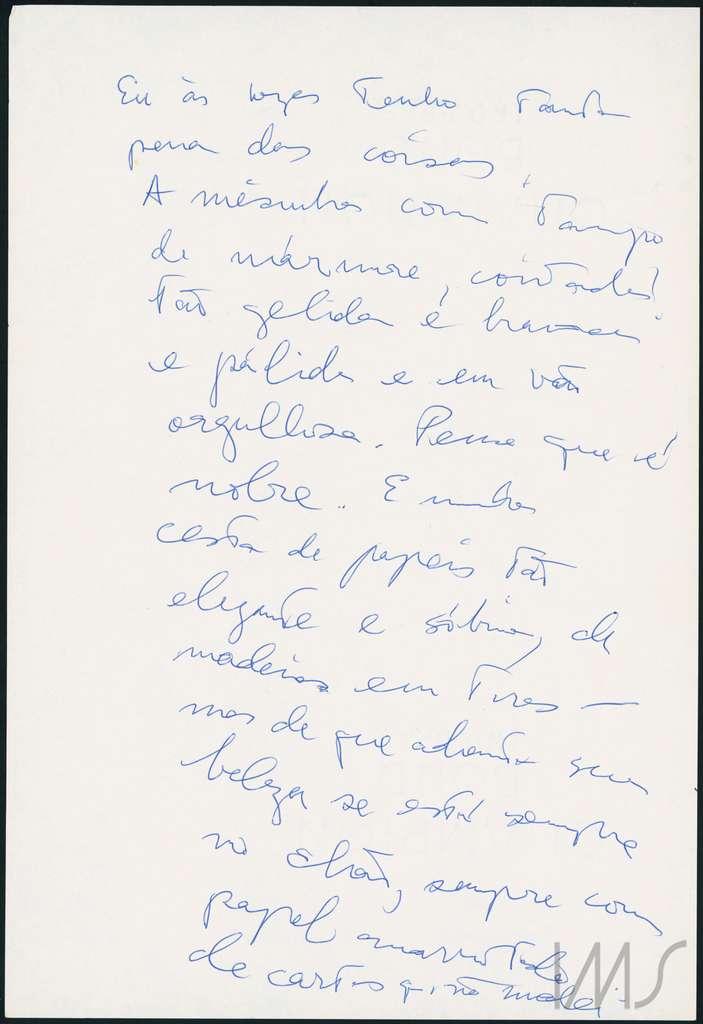 Eu às vezes tenho tanta
pena das coisas.
A mesinha com tampo
de mármore, coitada!
tão gelida é branca
e pálida e em vão
orgulhosa. Pensa que é
nobre. E minha
cesta de papéis tão
elegante e sóbria, de
madeira em tiras —
mas de que adianta sua
beleza se está sempre
no chão, sempre com
papel amarrotado
de cartas q. não mandei
IMS